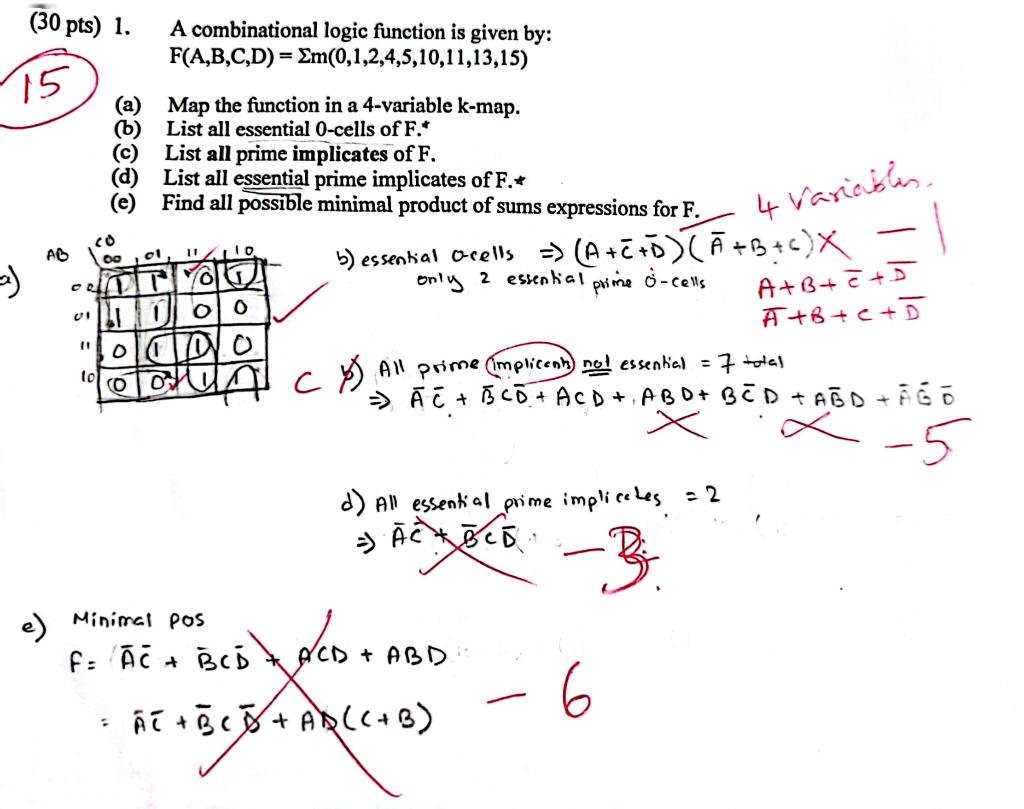 (30 pts) 1. A combinational logic function is given by:
F(A,B,C,D) = Σm(0,1,2,4,5,10,11,13,15)
15
(a) Map the function in a 4-variable k-map.
(b) List all essential 0-cells of F.*
(c) List all prime implicates of F.
(d) List all essential prime implicates of F.*
(e) Find all possible minimal product of sums expressions for F.
4 variables.
a)
AB CD 00 01 11 10
00 1 1 0 1
01 1 1 0 0
11 0 1 1 0
10 0 0 1 1
b) essential 0-cells ⇒ (A+C̄+D̄)(Ā+B+C) X - 1
only 2 essential prime 0-cells
A+B+C̄+D̄
Ā+B+C+D̄
C b) All prime implicants not essential = 7 total
⇒ ĀC̄ + B̄CD̄ + ACD + ABD + BC̄D + AB̄D + ĀB̄D̄
-5
d) All essential prime implicates = 2
⇒ ĀC̄ + B̄CD̄
e) Minimal pos
F = ĀC̄ + B̄CD̄ + ACD + ABD
= ĀC̄ + B̄CD̄ + AD(C+B)
-6